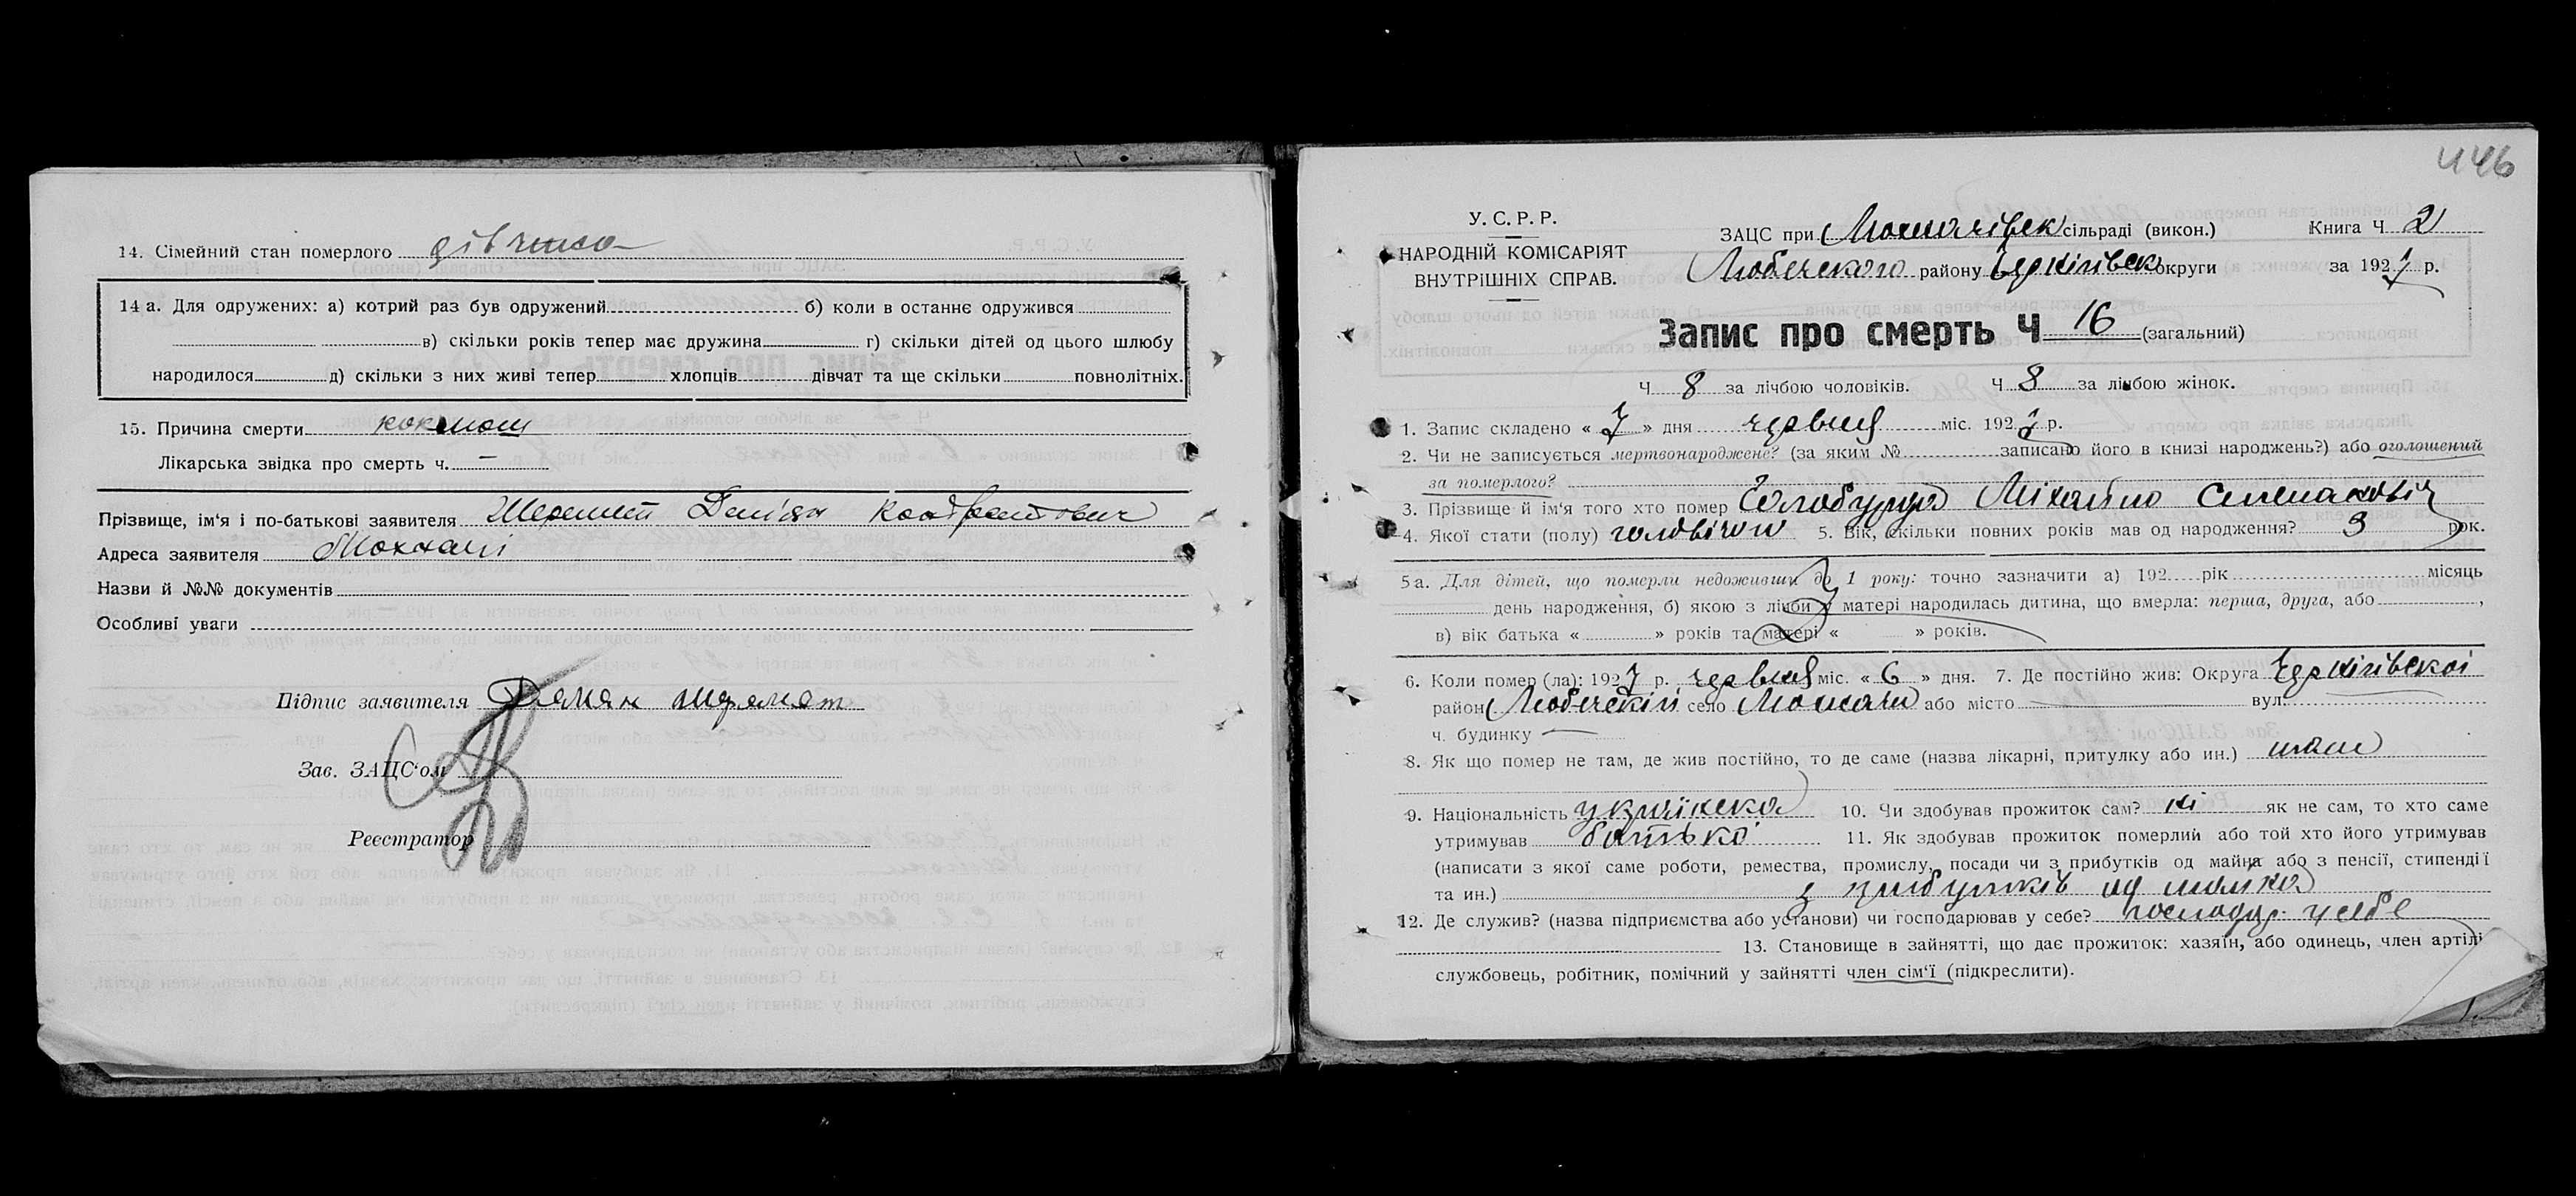 14. Сімейний стан померлого дівчина
14 а. Для одружених: а) котрий раз був одружений б) коли в останнє одружився
в) скільки років тепер має дружина г) скільки дітей од цього шлюбу
народилося д) скільки з них живі тепер хлопців дівчат та ще скільки повнолітніх.
15. Причина смерти коклюш
Лікарська звідка про смерть ч. —
Прізвище, ім'я і по-батькові заявителя Шеремет
Адреса заявителя Мохначі
Назви й №№ документів
Особливі уваги
Підпис заявителя
Зав. ЗАЦС'ом
Реєстратор
446
У. С. Р. Р.
НАРОДНІЙ КОМІСАРІЯТ
ВНУТРІШНІХ СПРАВ.
ЗАЦС при сільраді (викон.) Книга Ч 2
Любечского району Чернігівск округи за 1927 р.
Запис про смерть Ч 16 (загальний)
Ч 8 за лічбою чоловіків. Ч 8 за лічбою жінок.
1. Запис складено « 7 » дня червня міс. 1927 р.
2. Чи не записується мертвонароджене? (за яким № записано його в книзі народжень?) або оголошений
за померлого?
3. Прізвище й ім'я того хто помер Міхайло
4. Якої стати (полу) 5. Вік, скільки повних років мав од народження? 3 рок.
5 а. Для дітей, що померли недоживши до 1 року: точно зазначити а) 192 рік місяць
день народження, б) якою з лічби у матері народилась дитина, що вмерла: перша, друга, або ,
в) вік батька « » років та матері « » років.
6. Коли помер (ла): 1927 р. червня міс. « 6 » дня. 7. Де постійно жив: Округа Чернігівскої
район Любечскій село Мохначи або місто вул.
ч. будинку —
8. Як що помер не там, де жив постійно, то де саме (назва лікарні, притулку або ин.) там
9. Національність 10. Чи здобував прожиток сам? ні як не сам, то хто саме
утримував батькі 11. Як здобував прожиток померлий або той хто його утримував
(написати з якої саме роботи, ремества, промислу, посади чи з прибутків од майна або з пенсії, стипендії
та ин.) з прибутків од
12. Де служив? (назва підприємства або установи) чи господарював у себе? господар. у себе
13. Становище в зайнятті, що дає прожиток: хазяїн, або одинець, член артілі
службовець, робітник, помічний у зайнятті член сім'ї (підкреслити).